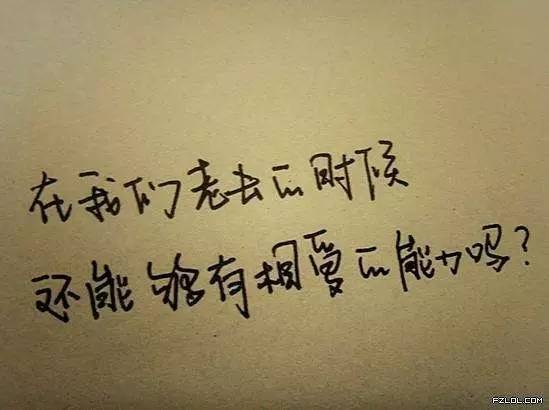 在我们老去的时候
还能够有相爱的能力吗?
FZLOL.COM